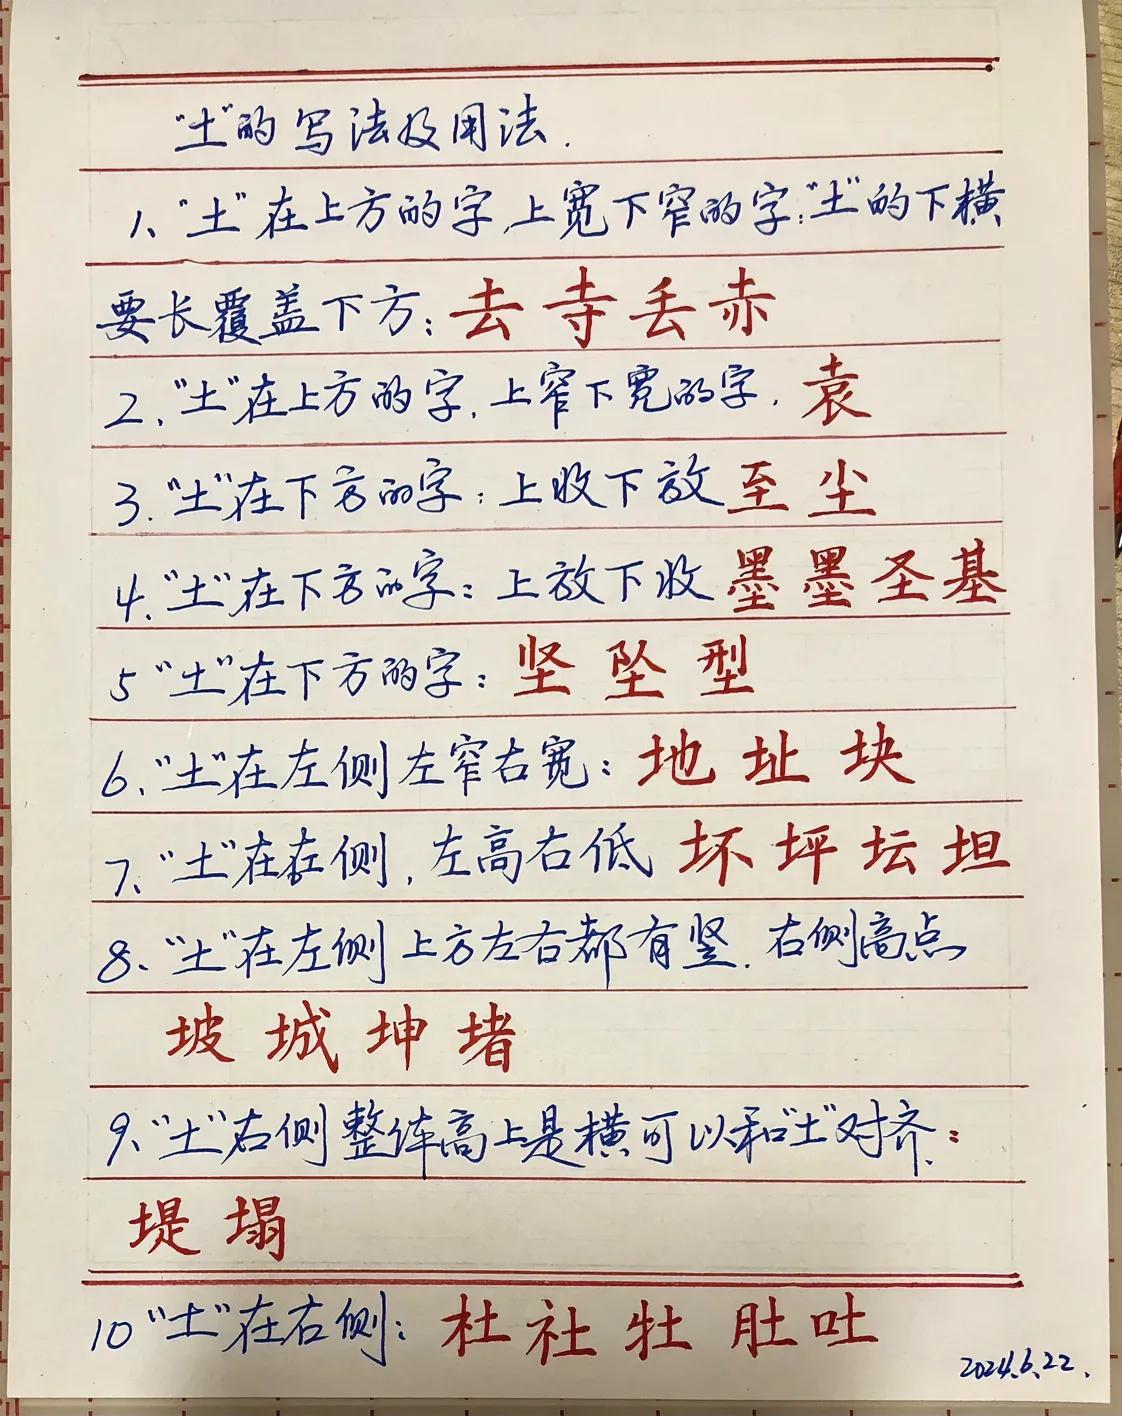 “土”的写法及用法.
1、“土”在上方的字,上宽下窄的字:“土”的下横
要长覆盖下方:去寺丢赤
2、“土”在上方的字,上窄下宽的字.袁
3.“土”在下方的字:上收下放至尘
4、“土”在下方的字:上放下收墨墨圣基
5“土”在下方的字:坚坠型
6、“土”在左侧左窄右宽:地址块
7、“土”在左侧,左高右低坏坪坛坦
8、“土”在左侧上方左右都有竖.右侧高点
坡城坤堵
9、“土”右侧整体高上是横可以和“土”对齐:
堤塌
10“土”在右侧:杜社牡肚吐
2024.6.22.